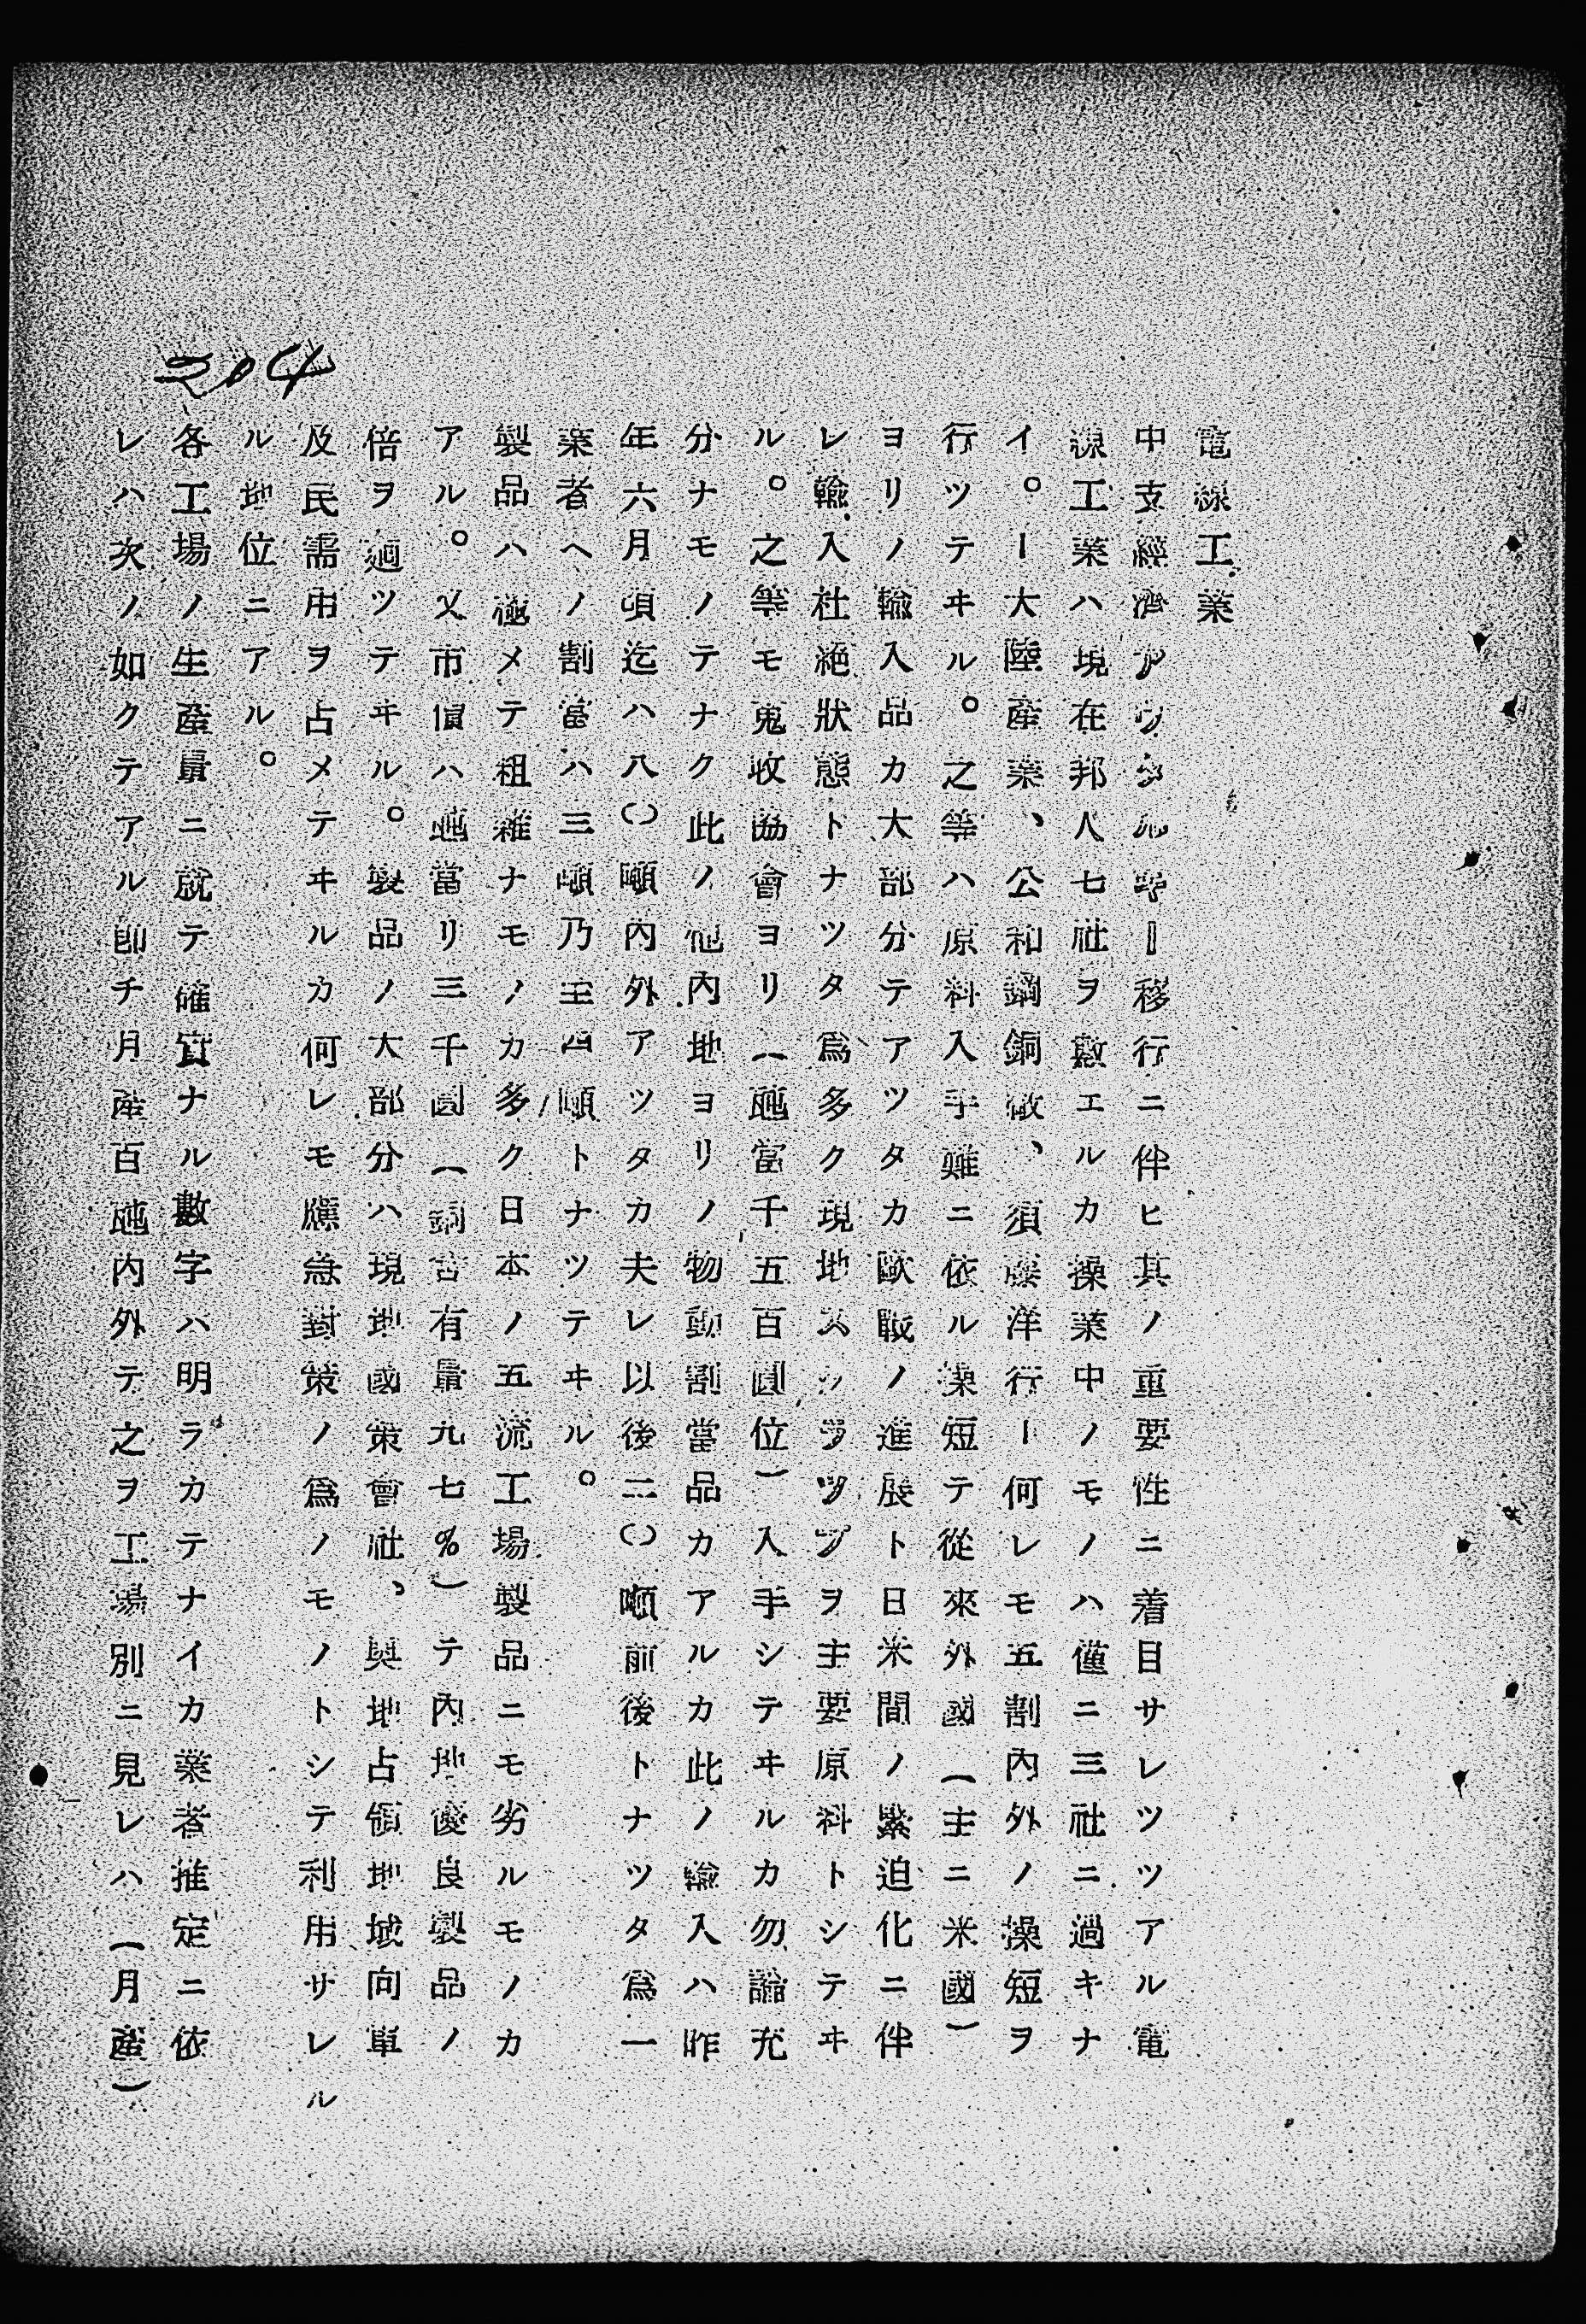 204
電線工業
中支經濟アウタルキー移行ニ伴ヒ其ノ重要性ニ着目サレツツアル電
線工業ハ現在邦人七社ヲ數エルカ操業中ノモノハ僅ニ三社ニ過キナ
イ。ー大陸產業、公和鋼銅廠、須藤洋行ー何レモ五割內外ノ操短ヲ
行ツテヰル。之等ハ原料入手難ニ依ル操短テ從來外國(主ニ米國)
ヨリノ輸入品カ大部分テアツタカ歐戰ノ進展ト日米間ノ緊迫化ニ伴
レ輸入杜絕狀態トナツタ爲多ク現地スクラツプヲ主要原料トシテヰ
ル。之等モ蒐收協會ヨリ(瓲當千五百圓位)入手シテヰルカ勿論充
分ナモノテナク此ノ他內地ヨリノ物動割當品カアルカ此ノ輸入ハ昨
年六月頃迄ハ八〇噸內外アツタカ夫レ以後二〇噸前後トナツタ爲一
業者ヘノ割當ハ三噸乃至四噸トナツテヰル。
製品ハ極メテ粗雜ナモノカ多ク日本ノ五流工場製品ニモ劣ルモノカ
アル。又市價ハ瓲當リ三千圓(銅含有量九七%)テ內地優良製品ノ
倍ヲ廻ツテヰル。製品ノ大部分ハ現地國策會社、奧地占領地域向單
及民需用ヲ占メテヰルカ何レモ應急對策ノ爲ノモノトシテ利用サレル
ル地位ニアル。
各工場ノ生產量ニ就テ確實ナル數字ハ明ラカテナイカ業者推定ニ依
レハ次ノ如クテアル卽チ月產百瓲內外テ之ヲ工場別ニ見レハ(月產)